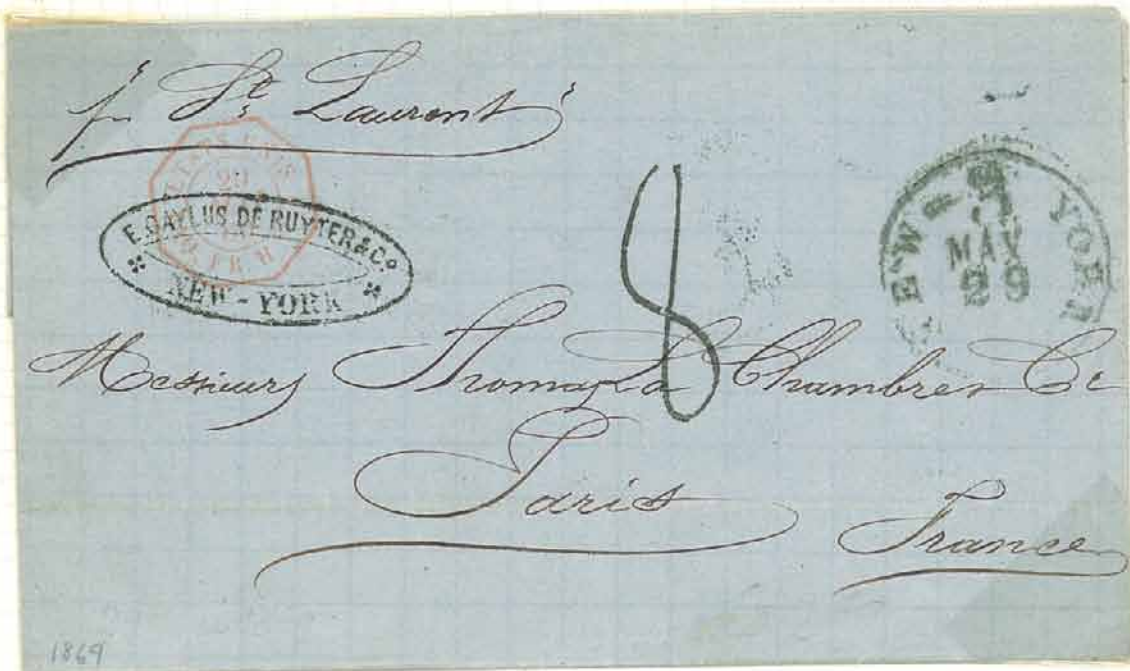 pr St Laurent
ETATS-UNIS
29
E. CAYLUS DE RUYTER & Co.
NEW-YORK
8
NEW YORK
MAY
29
Messieurs Thomas La Chambre & Ce
Paris
France
1869